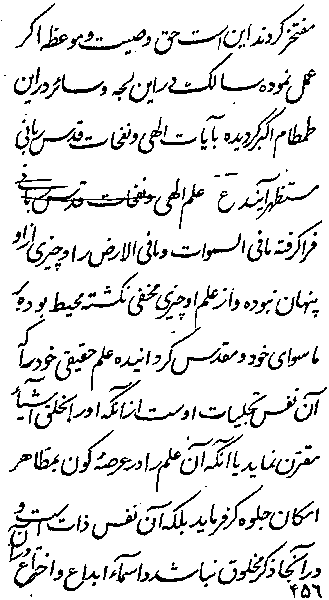 مفتخر کردند این است حق وصیت و موعظه اگر
عمل نموده سالک در این لجه و سائر در این
طمطام اکبر گردیده بآیات الهی و نفحات قدس ربانی
مستظهر آیند ع ع علم الهی و نفحات قدس ربانی
فرا گرفته مافی السموات و مافی الارض را و چیزی از او
پنهان نبوده و از علم او چیزی مخفی نگشته محیط بوده بر
ماسوای خود و مقدس گردانیده علم حقیقی خود را که
آن نفس تجلیات اوست از آنکه او را بخلق اشیاء
مقترن نماید یا آنکه آن علم را در عرصهٔ کون بمظاهر
امکان جلوه گر فرماید بلکه آن نفس ذات است و
در آنجا ذکر مخلوق نباشد و اسماء ابداع و اختراع در آن
۴۵۶